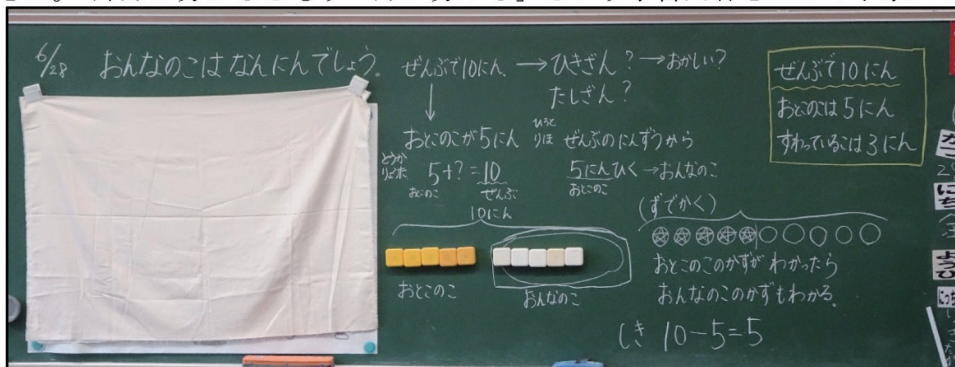 6/28 おんなのこは なんにんでしょう。
ぜんぶで10にん、→ひきざん?→おかしい?
たしざん?
↓
おとこのこが5にん
5+?=10
おとこのこ ぜんぶ
10にん
おとこのこ
おんなのこ
ひろと
りほ ぜんぶのにんずうから
5にんひく→おんなのこ
おとこのこ
(ずでかく)
おとこのこのかずが わかったら
おんなのこのかずもわかる。
しき 10-5=5
ぜんぶで10にん
おとこのこは5にん
すわっているこは3にん